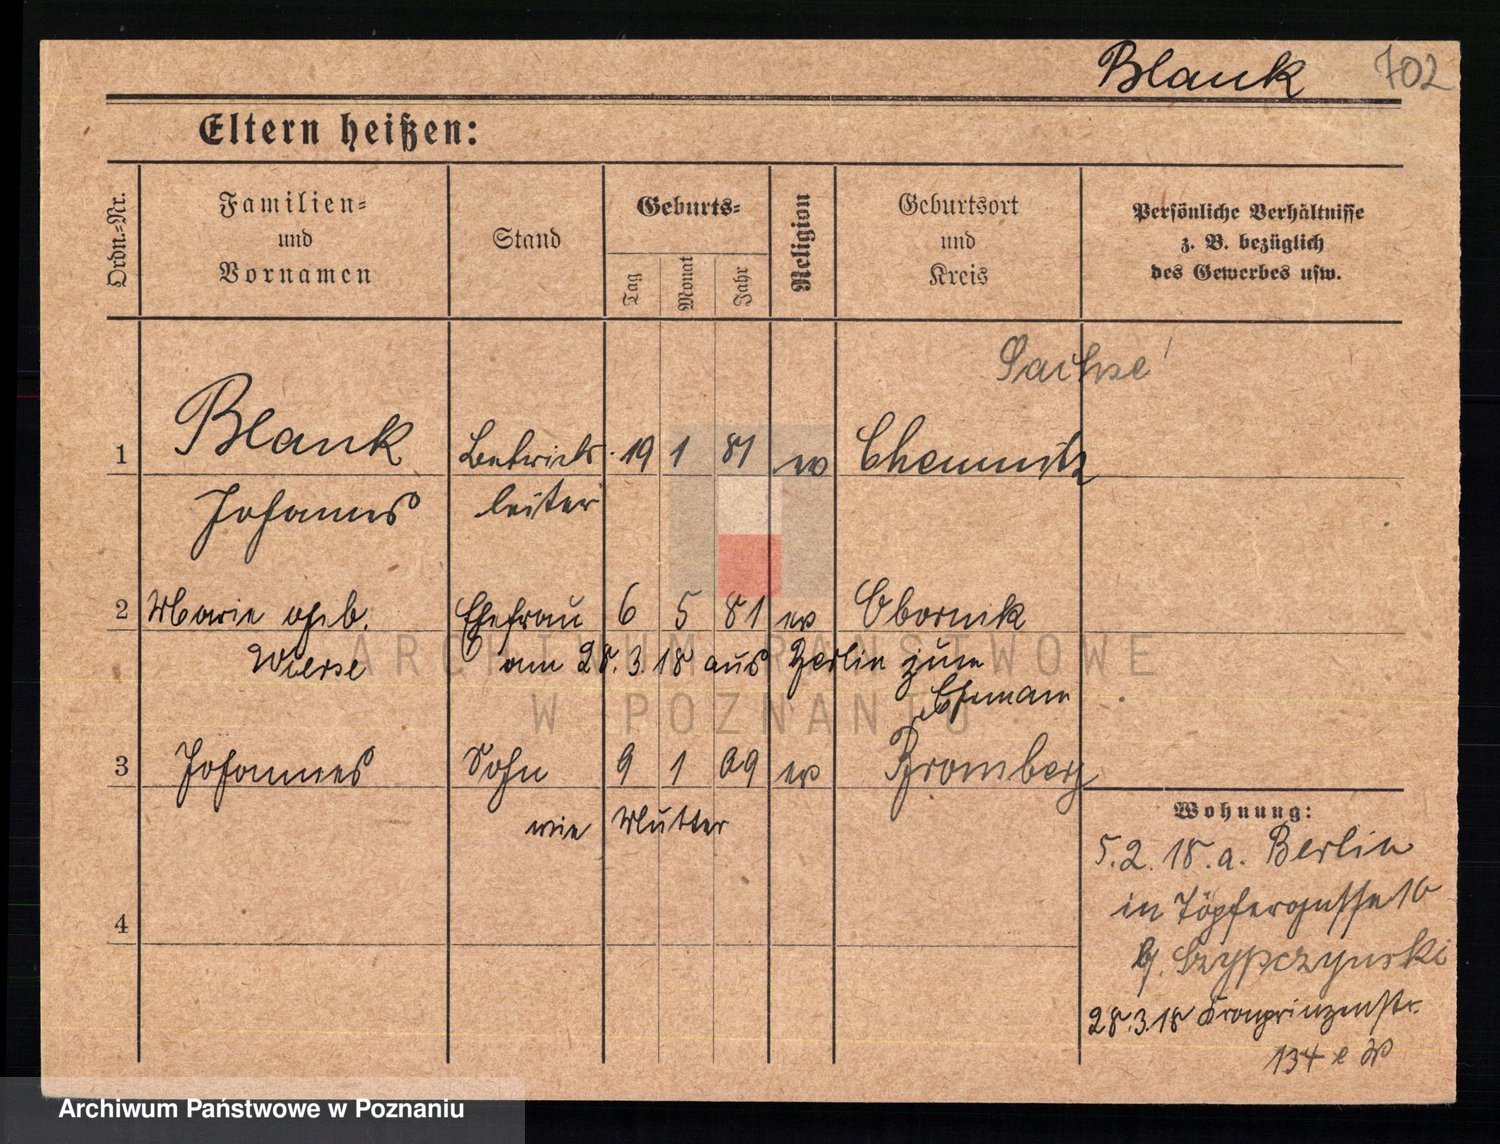 Blank 702
Eltern heißen:
Ordn.-Nr.
Familien-
und
Vornamen
Stand
Geburts-
Tag
Monat
Jahr
Religion
Geburtsort
und
Kreis
Persönliche Verhältnisse
z. B. bezüglich
des Gewerbes usw.
Sachse
1 Blank Betriebs- 19 1 81 ev Chemnitz
Johannes leiter
2 Marie geb. Ehefrau 6 5 81 ev Obornik
Wierse am 28.3.18 aus Berlin zum
Ehemann
3 Johannes Sohn 9 1 09 ev Bromberg
wie Mutter
4
Wohnung:
5.2.18. a. Berlin
in Töpfergasse 10
b. Szypczynski
28.3.18 Kronprinzenstr.
134
ARCHIWUM PAŃSTWOWE
W POZNANIU
Archiwum Państwowe w Poznaniu